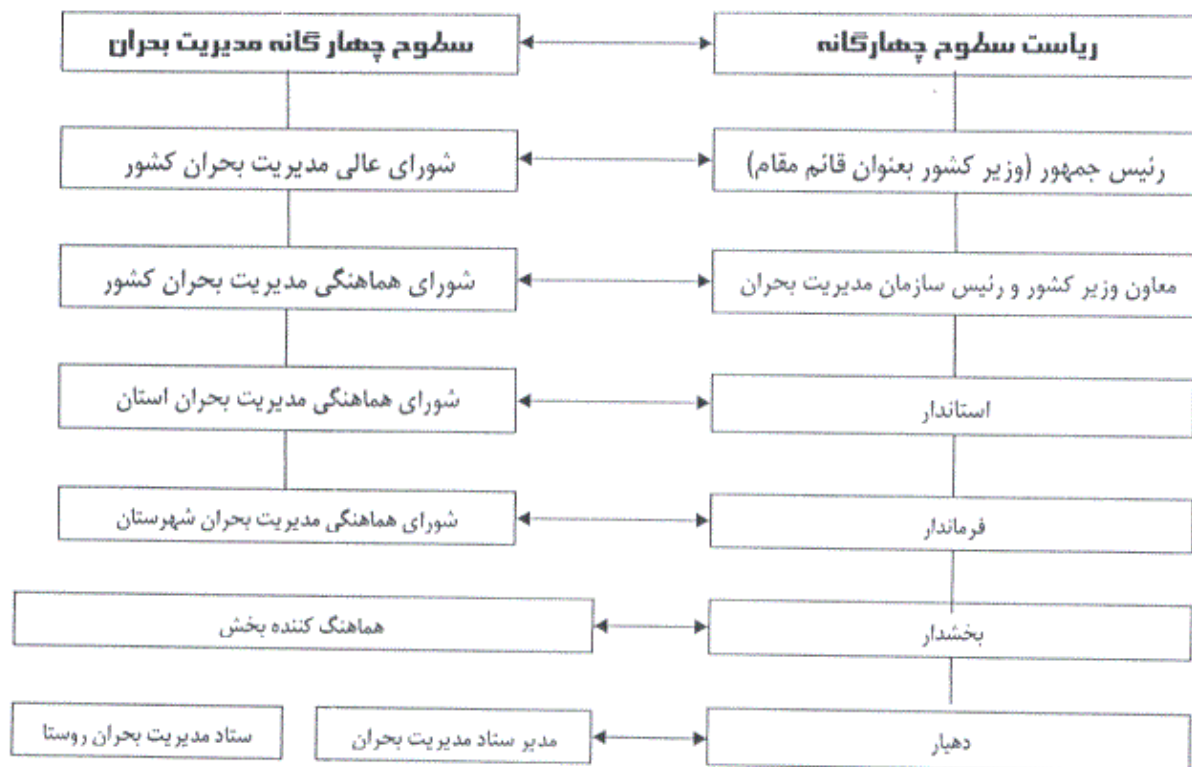 ریاست سطوح چهارگانه
سطوح چهار گانه مدیریت بحران
رئیس جمهور (وزیر کشور بعنوان قائم مقام)
شورای عالی مدیریت بحران کشور
معاون وزیر کشور و رئیس سازمان مدیریت بحران
شورای هماهنگی مدیریت بحران کشور
استاندار
شورای هماهنگی مدیریت بحران استان
فرماندار
شورای هماهنگی مدیریت بحران شهرستان
بخشدار
هماهنگ کننده بخش
دهیار
مدیر ستاد مدیریت بحران
ستاد مدیریت بحران روستا